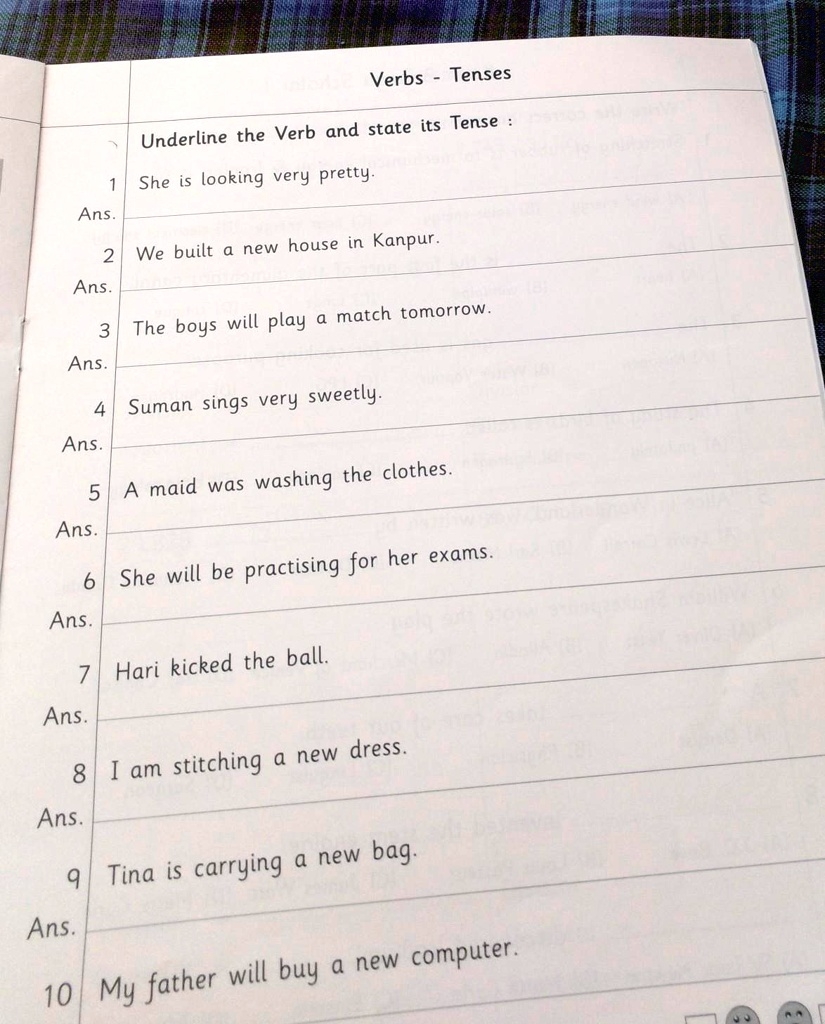 Verbs - Tenses
Underline the Verb and state its Tense :
1 She is looking very pretty.
Ans.
2 We built a new house in Kanpur.
Ans.
3 The boys will play a match tomorrow.
Ans.
4 Suman sings very sweetly.
Ans.
5 A maid was washing the clothes.
Ans.
6 She will be practising for her exams.
Ans.
7 Hari kicked the ball.
Ans.
8 I am stitching a new dress.
Ans.
9 Tina is carrying a new bag.
Ans.
10 My father will buy a new computer.